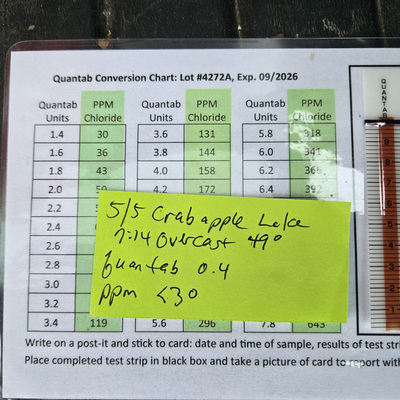 Quantab Conversion Chart: Lot #4272A, Exp. 09/2026
Quantab Units PPM Chloride Quantab Units PPM Chloride Quantab Units PPM Chloride
1.4 30 3.6 131 5.8 318
1.6 36 3.8 144 6.0 341
1.8 43 4.0 158 6.2 366
2.0 50 4.2 172 6.4 392
2.2
2.4
2.6
2.8
3.0
3.2
3.4 119 5.6 296 7.8 643
5/5 Crabapple Lake
7:14 Overcast 49°
Quantab 0.4
ppm <30
Write on a post-it and stick to card: date and time of sample, results of test stri
Place completed test strip in black box and take a picture of card to report with
QUANTAB
9
8
7
6